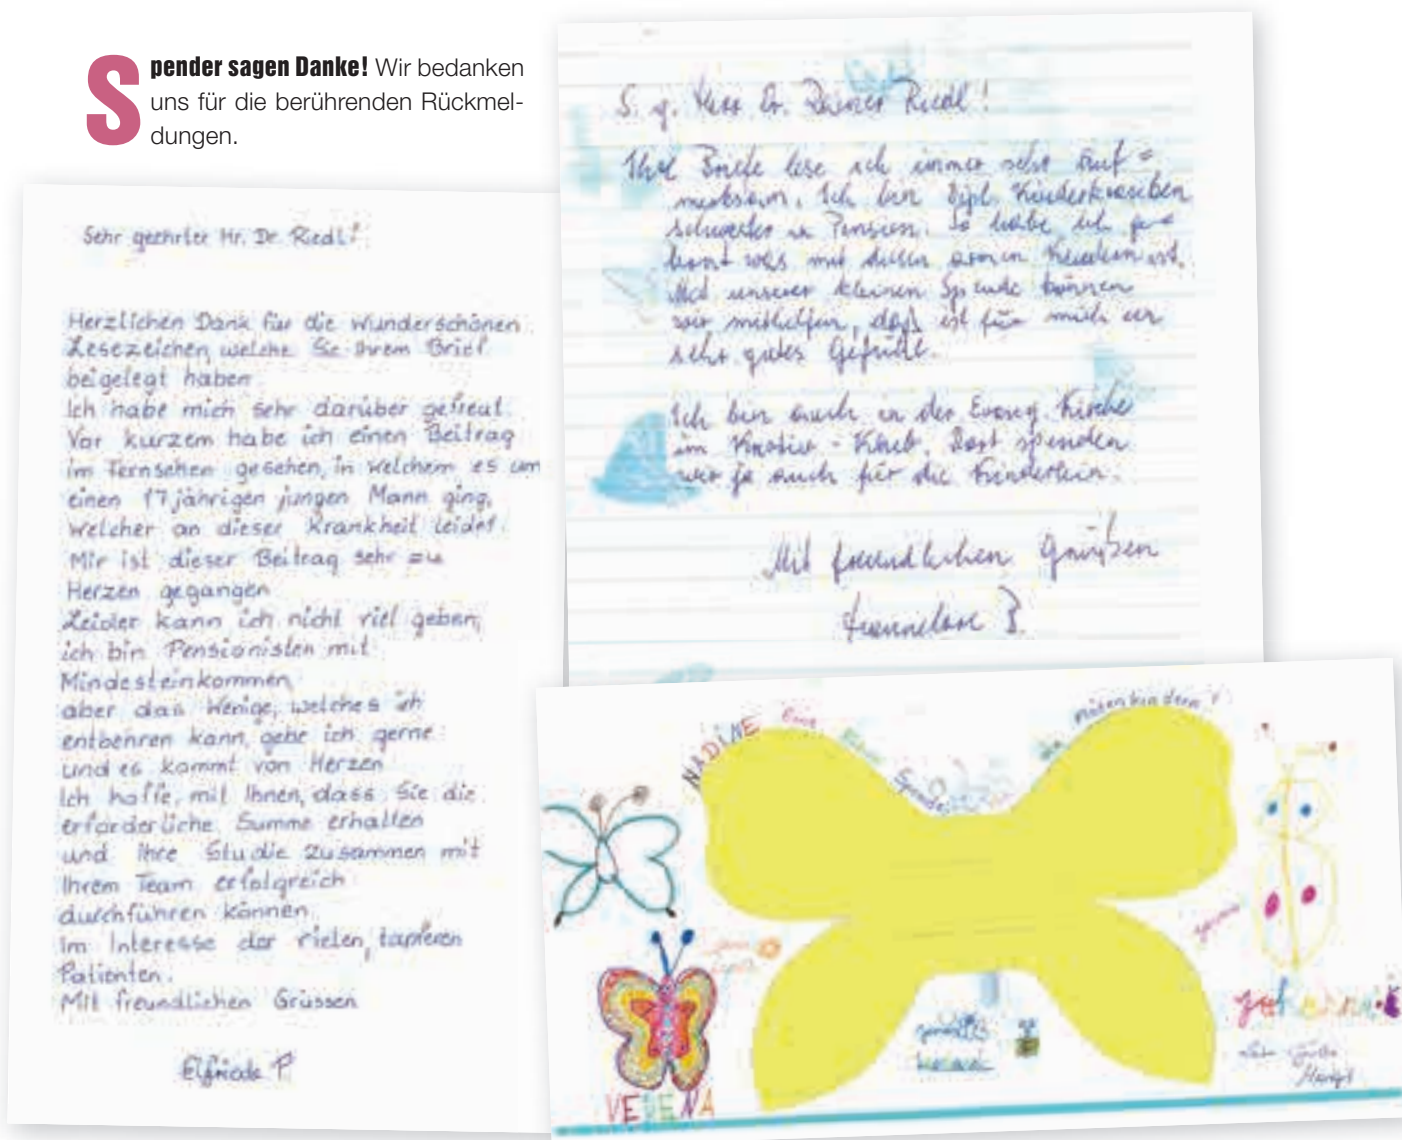 Spender sagen Danke! Wir bedanken
uns für die berührenden Rückmel-
dungen.
Sehr geehrter Hr. Dr. Riedl!
Herzlichen Dank für die wunderschönen
Lesezeichen, welche Sie Ihrem Brief
beigelegt haben.
Ich habe mich sehr darüber gefreut.
Vor kurzem habe ich einen Beitrag
im Fernsehen gesehen, in welchem es um
einen 17jährigen jungen Mann ging,
welcher an dieser Krankheit leidet.
Mir ist dieser Beitrag sehr zu
Herzen gegangen
Leider kann ich nicht viel geben,
ich bin Pensionisten mit
Mindesteinkommen,
aber das Wenige, welches ich
entbehren kann, gebe ich gerne
und es kommt von Herzen
Ich hoffe, mit Ihnen, dass Sie die
erforderliche Summe erhalten
und Ihre Studie zusammen mit
Ihrem Team erfolgreich
durchführen können.
Im Interesse der vielen, tapferen
Patienten.
Mit freundlichen Grüssen
Elfriede P.
S. g. Herr Dr. Rainer Riedl!
Ihre Briefe lese ich immer sehr auf=
merksam. Ich bin Dipl. Kinderkranken
schwester in Pension. So habe ich ge=
lernt was mit diesen armen Kindern ist.
Mit unserer kleinen Spende können
wir mithelfen, daß ist für mich ein
sehr gutes Gefühl.
Ich bin auch in der Evang. Kirche
im Kreativ - Klub. Dort spenden
wir ja auch für die Kinderlein.
Mit freundlichen Grüßen
Hannelore B.
NADINE
Eine
Spende
VERENA